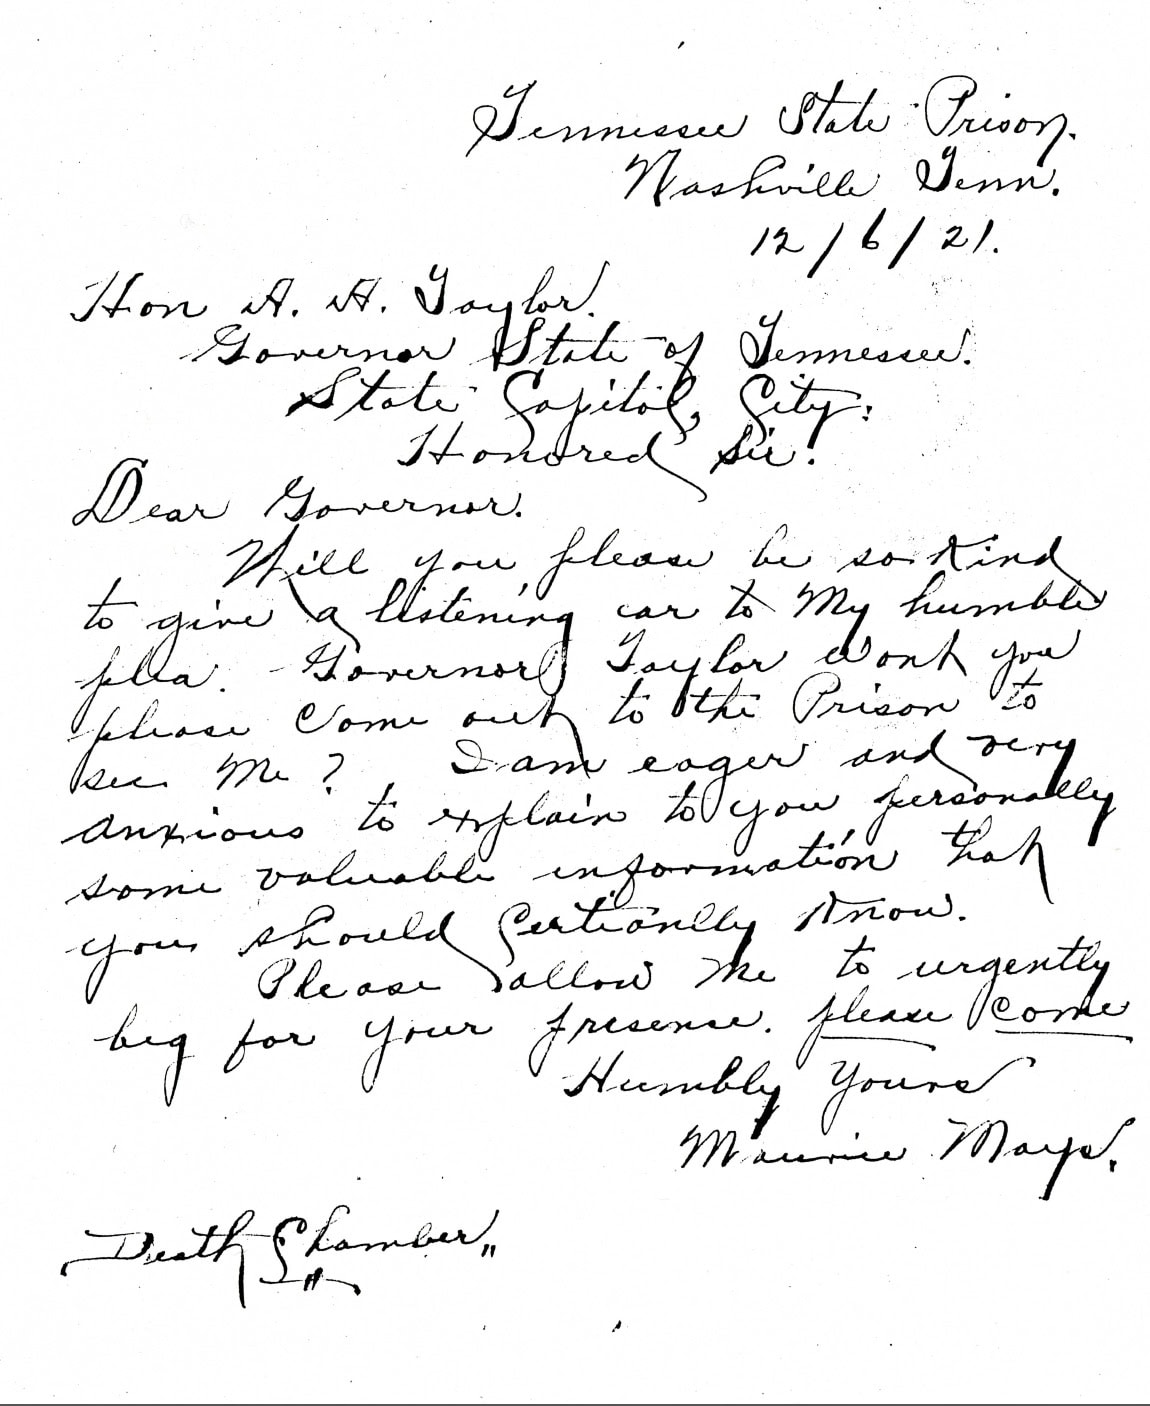 Tennessee State Prison.
Nashville Tenn.
12/6/21.
Hon A. A. Taylor.
Governor State of Tennessee.
State Capitol, City:
Honored Sir!
Dear Governor.
Will you please be so kind
to give a listening ear to My humble
plea. Governor Taylor wont you
please Come out to the Prison to
see Me? I am eager and very
anxious to explain to you personally
some valuable information that
you should Certianlly Know.
Please allow Me to urgently
beg for your presense. please come
Humbly Yours
Maurice Mays.
Death Chamber"
"